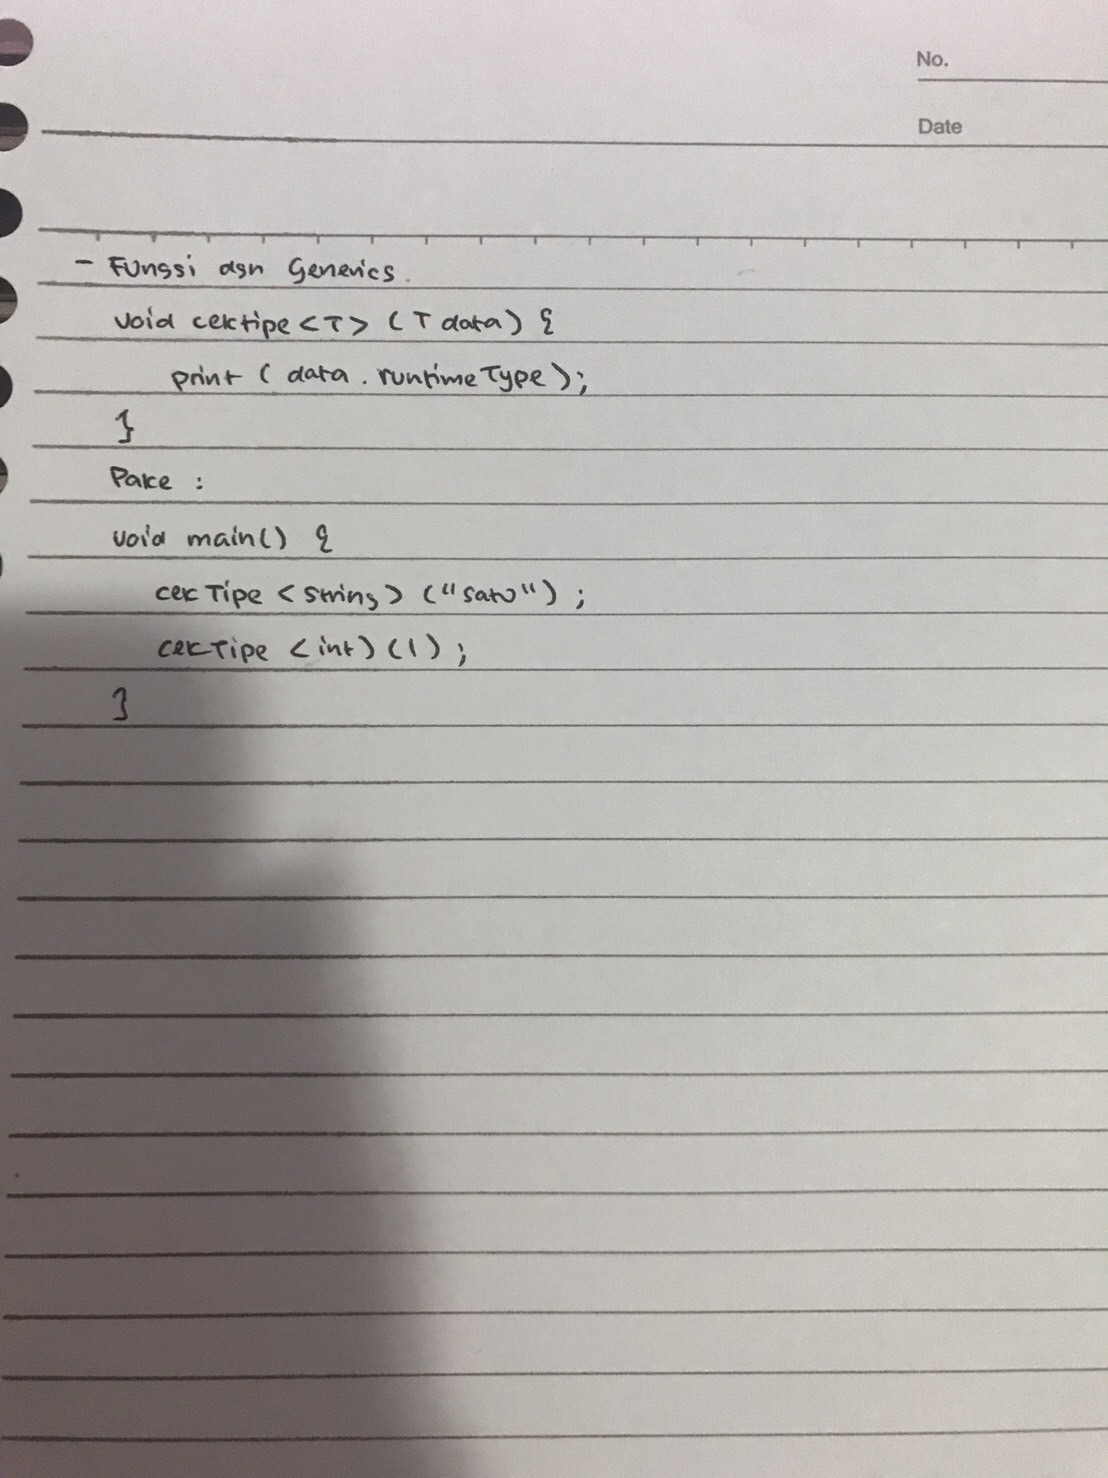 No.
Date
- Fungsi dgn Generics.
void cektipe <T> (T data) {
print ( data . runtimeType );
}
Pake :
void main() {
cekTipe <string> ("satu") ;
cekTipe <int) (1) ;
}